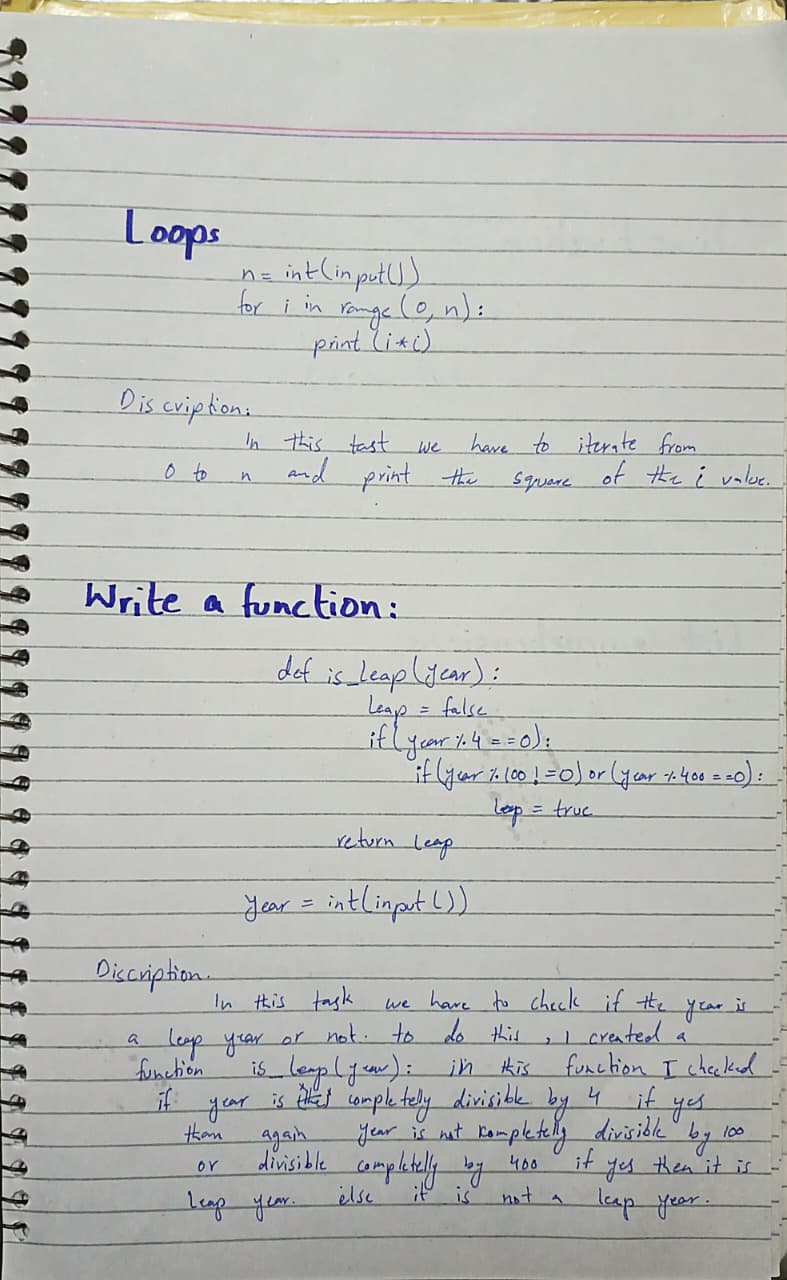 Loops
n = int(input())
for i in range(0, n):
print(i*i)
Discription:
In this tast we have to iterate from
0 to n and print the square of the i value.
Write a function:
def is_leap(year):
leap = false
if(year % 4 == 0):
if(year % 100 != 0) or (year % 400 == 0):
leap = true
return leap
year = int(input())
Discription.
In this task we have to check if the year is
a leap year or not. to do this, I created a
function is_leap(year): in this function I checked
if year is completely divisible by 4 if yes
than again year is not kompletelly divisible by 100
or divisible completelly by 400 if yes then it is
leap year. else it is not a leap year.